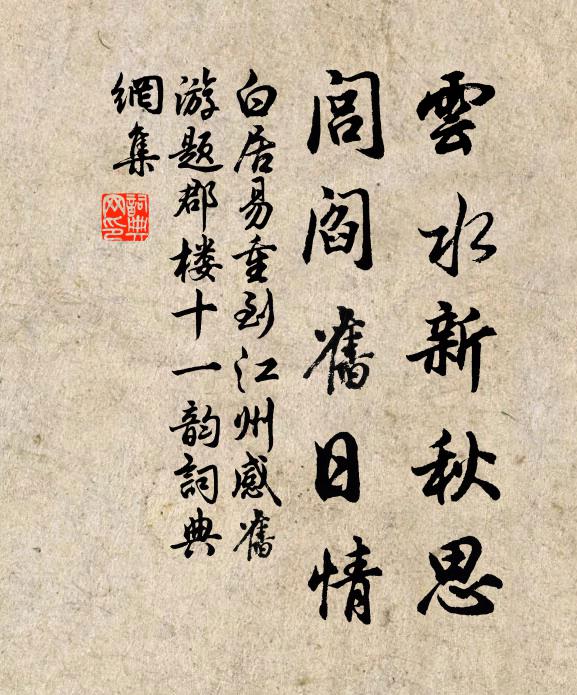 雲水新秋思
闾阎舊日情
白居易重到江州感舊
游题郡楼十一韵詞典
網集
詞典
网印